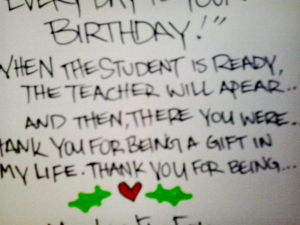 EVERY DAY IS YOUR
BIRTHDAY!"
WHEN THE STUDENT IS READY,
THE TEACHER WILL APEAR..
AND THEN, THERE YOU WERE..
THANK YOU FOR BEING A GIFT IN
MY LIFE. THANK YOU FOR BEING...